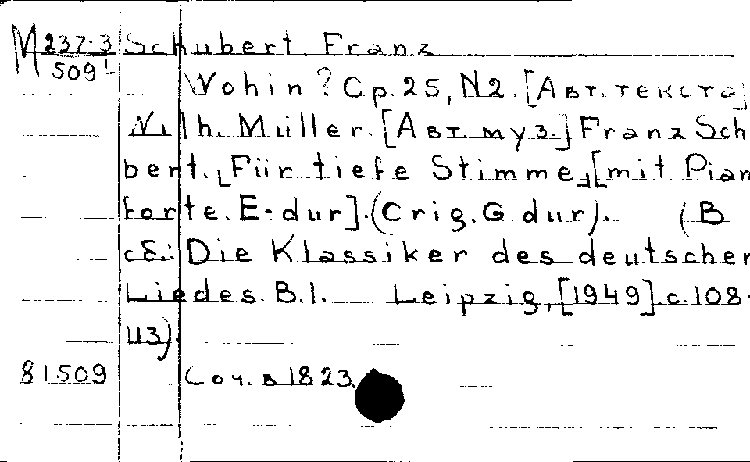 М 237-3 Schubert Franz
509
Wohin? Op. 25, N2. [Авт. текста]
Wilh. Müller. [Авт. муз.] Franz Sch
bert. [Für tiefe Stimme,] [mit Pian
forte. E-dur]. (Orig. G dur). (В
сб: Die Klassiker des deutschen
Liedes. B.1. Leipzig, [1949] с.108-
113).
81509 Соч. в 1823.